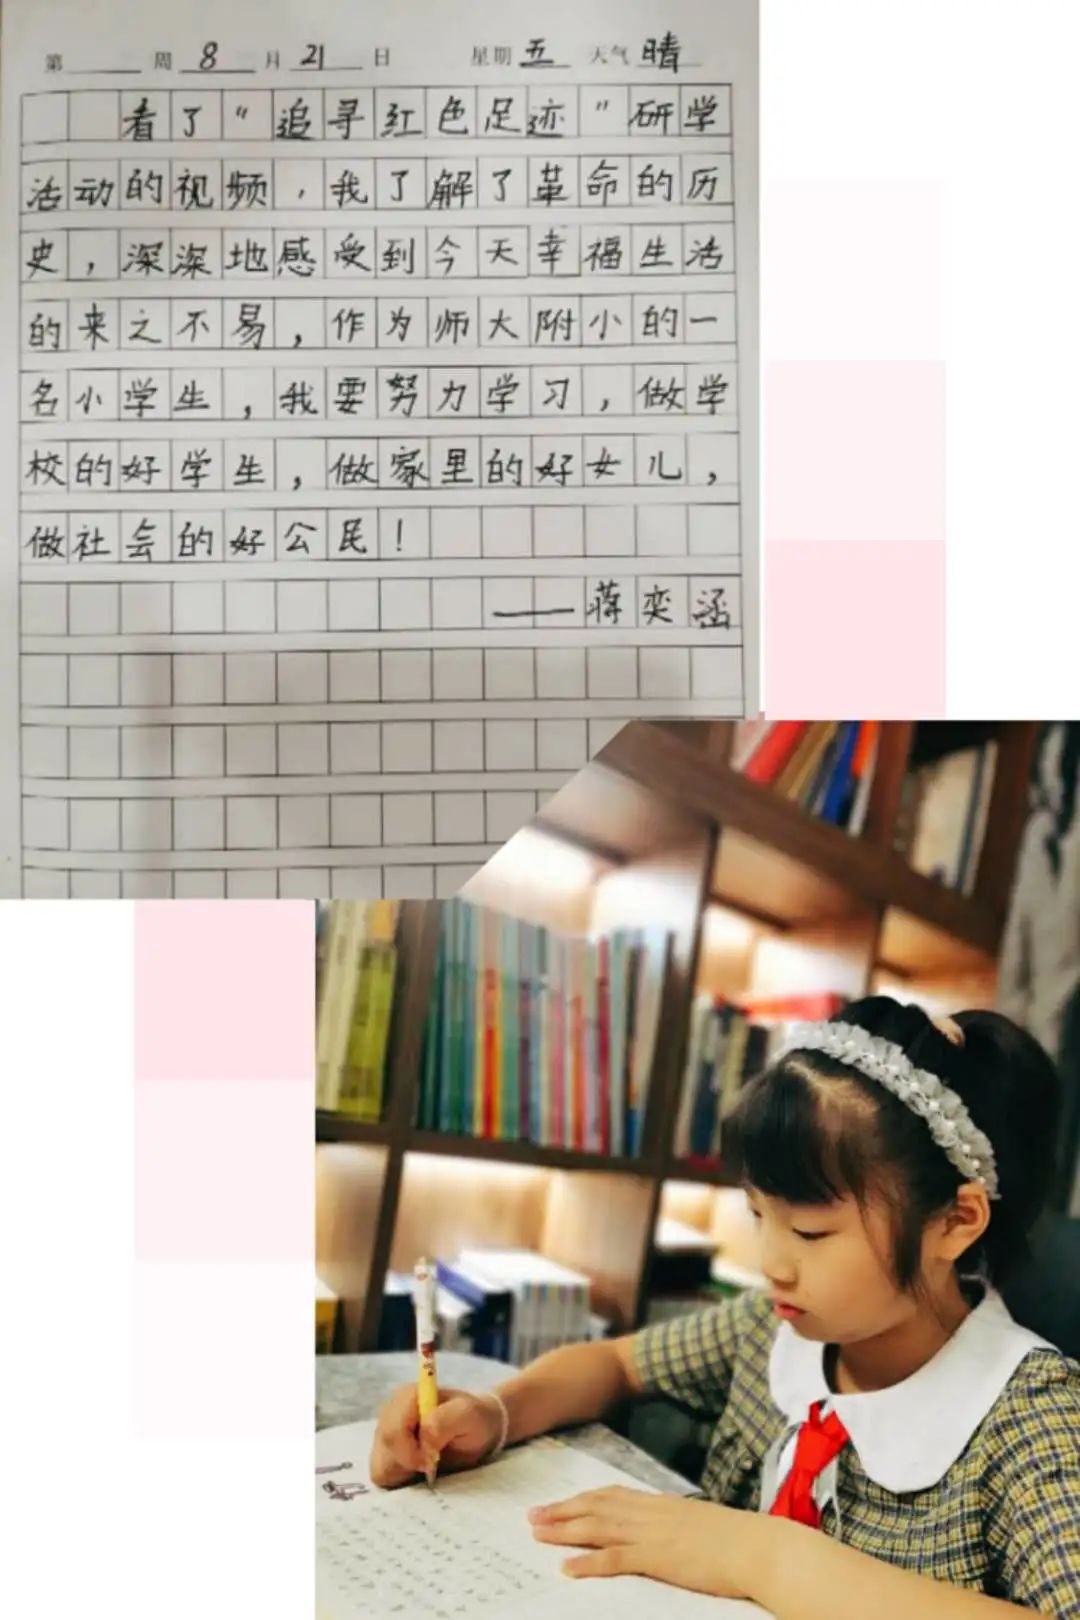 第 周 8 月 21 日 星期 五 天气 晴
看了“追寻红色足迹”研学
活动的视频，我了解了革命的历
史，深深地感受到今天幸福生活
的来之不易，作为师大附小的一
名小学生，我要努力学习，做学
校的好学生，做家里的好女儿，
做社会的好公民！
——蒋奕涵